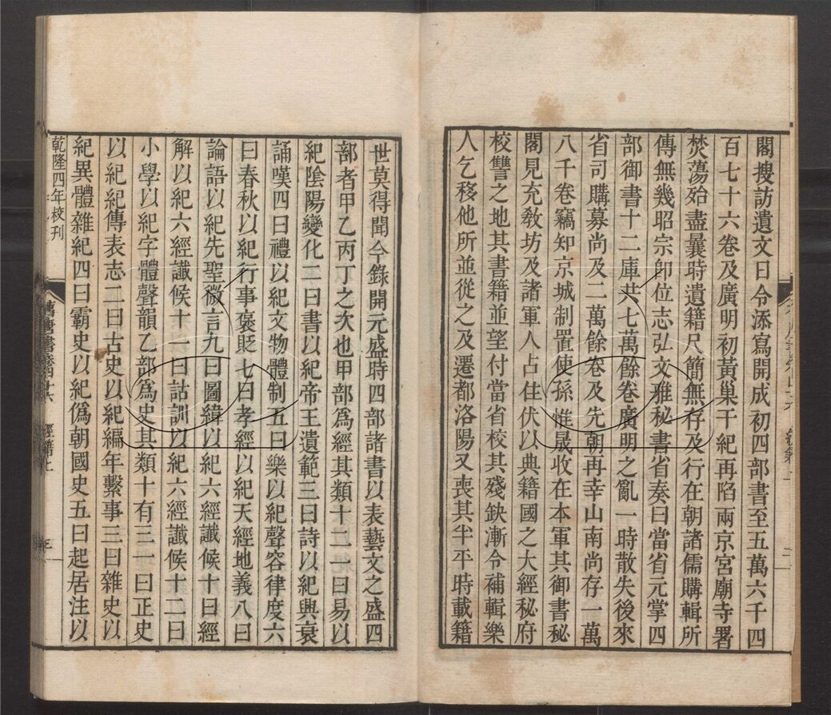 閣搜訪遺文日令添寫開成初四部書至五萬六千四
百七十六卷及廣明初黃巢干紀再陷兩京宮廟寺署
焚蕩殆盡曩時遺籍尺簡無存及行在朝諸儒購輯所
傳無幾昭宗卽位志弘文雅秘書省奏曰當省元掌四
部御書十二庫共七萬餘卷廣明之亂一時散失後來
省司購募尚及二萬餘卷及先朝再幸山南尚存一萬
八千卷竊知京城制置使孫惟晟收在本軍其御書秘
閣見充敎坊及諸軍人占住伏以典籍國之大經秘府
校讐之地其書籍並望付當省校其殘缺漸令補輯樂
人乞移他所並從之及遷都洛陽又喪其半平時載籍
世莫得聞今錄開元盛時四部諸書以表藝文之盛四
部者甲乙丙丁之次也甲部爲經其類十二一曰易以
紀陰陽變化二曰書以紀帝王遺範三曰詩以紀興衰
誦嘆四曰禮以紀文物體制五曰樂以紀聲容律度六
曰春秋以紀行事襃貶七曰孝經以紀天經地義八曰
論語以紀先聖微言九曰圖緯以紀六經讖候十曰經
解以紀六經讖候十一曰詁訓以紀六經讖候十二曰
小學以紀字體聲韻乙部爲史其類十有三一曰正史
以紀紀傳表志二曰古史以紀編年繫事三曰雜史以
紀異體雜紀四曰霸史以紀僞朝國史五曰起居注以
乾隆四年校刊
舊唐書卷四十六 經籍上 三